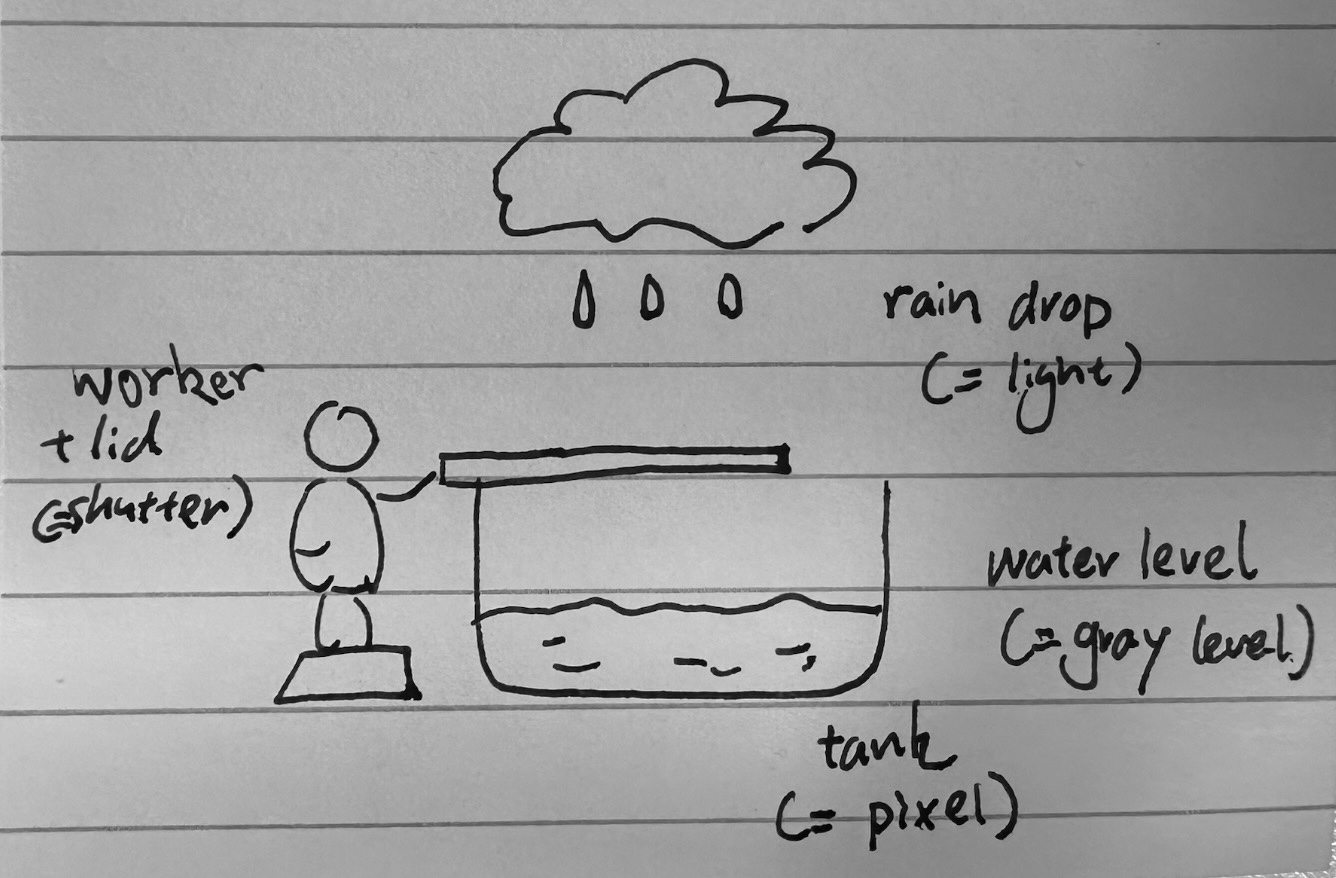 rain drop
(= light)
worker
+ lid
(=shutter)
water level
(= gray level)
tank
(= pixel)